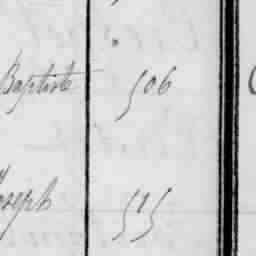 Baptiste 506
Joseph 515